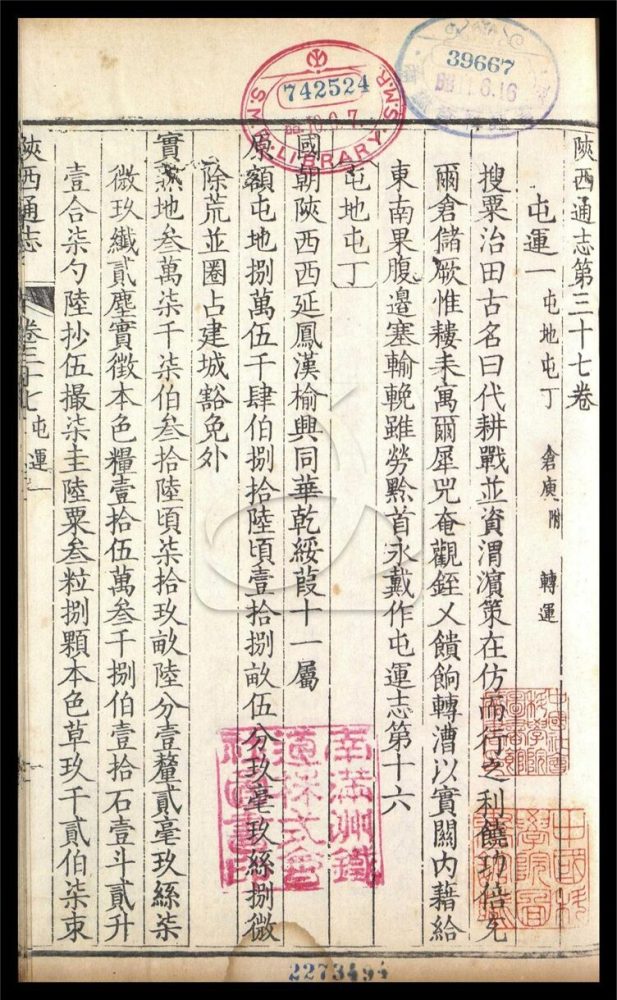 陝西通志第三十七卷
屯運一 屯地屯丁 倉庾附 轉運
搜粟治田古名曰代耕戰並資渭濵策在仿而行之利饒功倍充
爾倉儲厥惟耬耒寓爾犀兕奄觀銍乂饋餉轉漕以實關內藉給
東南果腹邊塞輸輓雖勞黔首永戴作屯運志第十六
屯地屯丁
國朝陝西西延鳳漢榆興同華乾綏葭十一屬
原額屯地捌萬伍千肆伯捌拾陸頃壹拾捌畝伍分玖毫玖絲捌微
除荒並圈占建城豁免外
實熟地叁萬柒千柒伯叁拾陸頃柒拾玖畝陸分壹釐貳毫玖絲柒
微玖纖貳塵實徵本色糧壹拾伍萬叁千捌伯壹拾石壹斗貳升
壹合柒勺陸抄伍撮柒圭陸粟叁粒捌顆本色草玖千貳伯柒束
陝西通志
卷三十七 屯運一
742524
S.M.R. LIBRARY S.M.R.
39667
南滿洲鐵
道株式會
社圖書印
中國科
學院圖
2273494